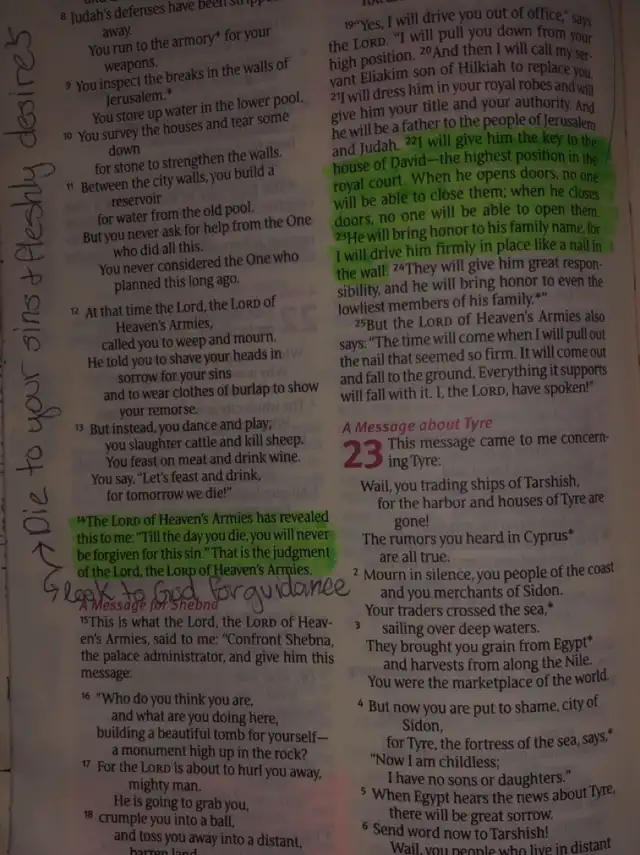 Die to your sins + fleshly desires
8 Judah's defenses have been stripped
away.
You run to the armory* for your
weapons.
9 You inspect the breaks in the walls of
Jerusalem.*
You store up water in the lower pool.
10 You survey the houses and tear some
down
for stone to strengthen the walls.
11 Between the city walls, you build a
reservoir
for water from the old pool.
But you never ask for help from the One
who did all this.
You never considered the One who
planned this long ago.
12 At that time the Lord, the LORD of
Heaven's Armies,
called you to weep and mourn.
He told you to shave your heads in
sorrow for your sins
and to wear clothes of burlap to show
your remorse.
13 But instead, you dance and play;
you slaughter cattle and kill sheep.
You feast on meat and drink wine.
You say, "Let's feast and drink,
for tomorrow we die!"
14 The LORD of Heaven's Armies has revealed
this to me: "Till the day you die, you will never
be forgiven for this sin." That is the judgment
of the Lord, the LORD of Heaven's Armies.
look to God for guidance
A Message for Shebna
15 This is what the Lord, the LORD of Heav-
en's Armies, said to me: "Confront Shebna,
the palace administrator, and give him this
message:
16 "Who do you think you are,
and what are you doing here,
building a beautiful tomb for yourself—
a monument high up in the rock?
17 For the LORD is about to hurl you away,
mighty man.
He is going to grab you,
18 crumple you into a ball,
and toss you away into a distant,
barren land.
19 "Yes, I will drive you out of office," says
the LORD. "I will pull you down from your
high position. 20 And then I will call my ser-
vant Eliakim son of Hilkiah to replace you.
21 I will dress him in your royal robes and will
give him your title and your authority. And
he will be a father to the people of Jerusalem
and Judah. 22 I will give him the key to the
house of David—the highest position in the
royal court. When he opens doors, no one
will be able to close them; when he closes
doors, no one will be able to open them.
23 He will bring honor to his family name, for
I will drive him firmly in place like a nail in
the wall. 24 They will give him great respon-
sibility, and he will bring honor to even the
lowliest members of his family.*"
25 But the LORD of Heaven's Armies also
says: "The time will come when I will pull out
the nail that seemed so firm. It will come out
and fall to the ground. Everything it supports
will fall with it. I, the LORD, have spoken!"
A Message about Tyre
23 This message came to me concern-
ing Tyre:
Wail, you trading ships of Tarshish,
for the harbor and houses of Tyre are
gone!
The rumors you heard in Cyprus*
are all true.
2 Mourn in silence, you people of the coast
and you merchants of Sidon.
Your traders crossed the sea,*
3 sailing over deep waters.
They brought you grain from Egypt*
and harvests from along the Nile.
You were the marketplace of the world.
4 But now you are put to shame, city of
Sidon,
for Tyre, the fortress of the sea, says,*
"Now I am childless;
I have no sons or daughters."
5 When Egypt hears the news about Tyre,
there will be great sorrow.
6 Send word now to Tarshish!
Wail, you people who live in distant